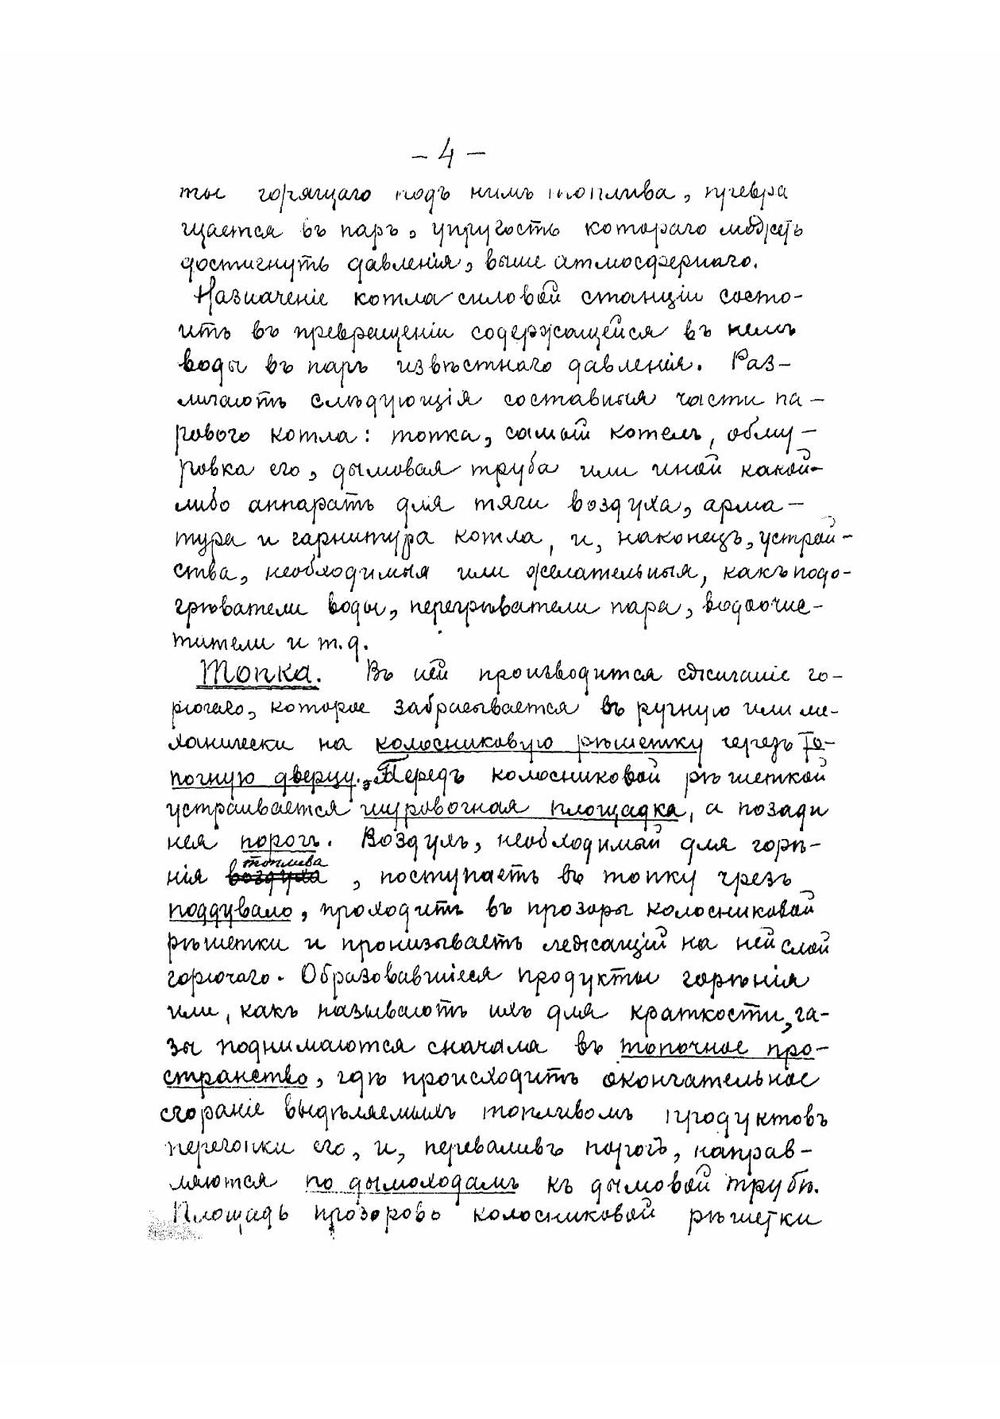 – 4 –
ты горящаго подъ нимъ топлива, превра
щается въ паръ, упругость котораго можетъ
достигнуть давленія, выше атмосфернаго.
Назначеніе котла силовой станціи состо-
итъ въ превращеніи содержащейся въ немъ
воды въ паръ извѣстнаго давленія. Раз-
личаютъ слѣдующія составныя части па-
рового котла: топка, самый котелъ, обму-
ровка его, дымовая труба или иной какой-
либо аппаратъ для тяги воздуха, арма-
тура и гарнитура котла, и, наконецъ, устрой-
ства, необходимыя или желательныя, какъ подо-
грѣватели воды, перегрѣватели пара, водоочис-
тители и т.д.
Топка. Въ ней производится сжиганіе го-
рючаго, которое забрасывается въ ручную или ме-
ханически на колосниковую рѣшетку черезъ то-
почную дверцу. Передъ колосниковой рѣшеткой
устраивается шуровочная площадка, а позади
нея порогъ. Воздухъ, необходимый для горѣ-
топлива
нія воздуха, поступаетъ въ топку чрезъ
поддувало, проходитъ въ прозоры колосниковой
рѣшетки и пронизываетъ лежащій на ней слой
горючаго. Образовавшіеся продукты горѣнія
или, какъ называютъ ихъ для краткости, га-
зы поднимаются сначала въ топочное про-
странство, гдѣ происходитъ окончательное
сгораніе выдѣляемыхъ топливомъ продуктовъ
перегонки его, и, переваливъ порогъ, направ-
ляются по дымоходамъ къ дымовой трубѣ.
Площадь прозоровъ колосниковой рѣшетки